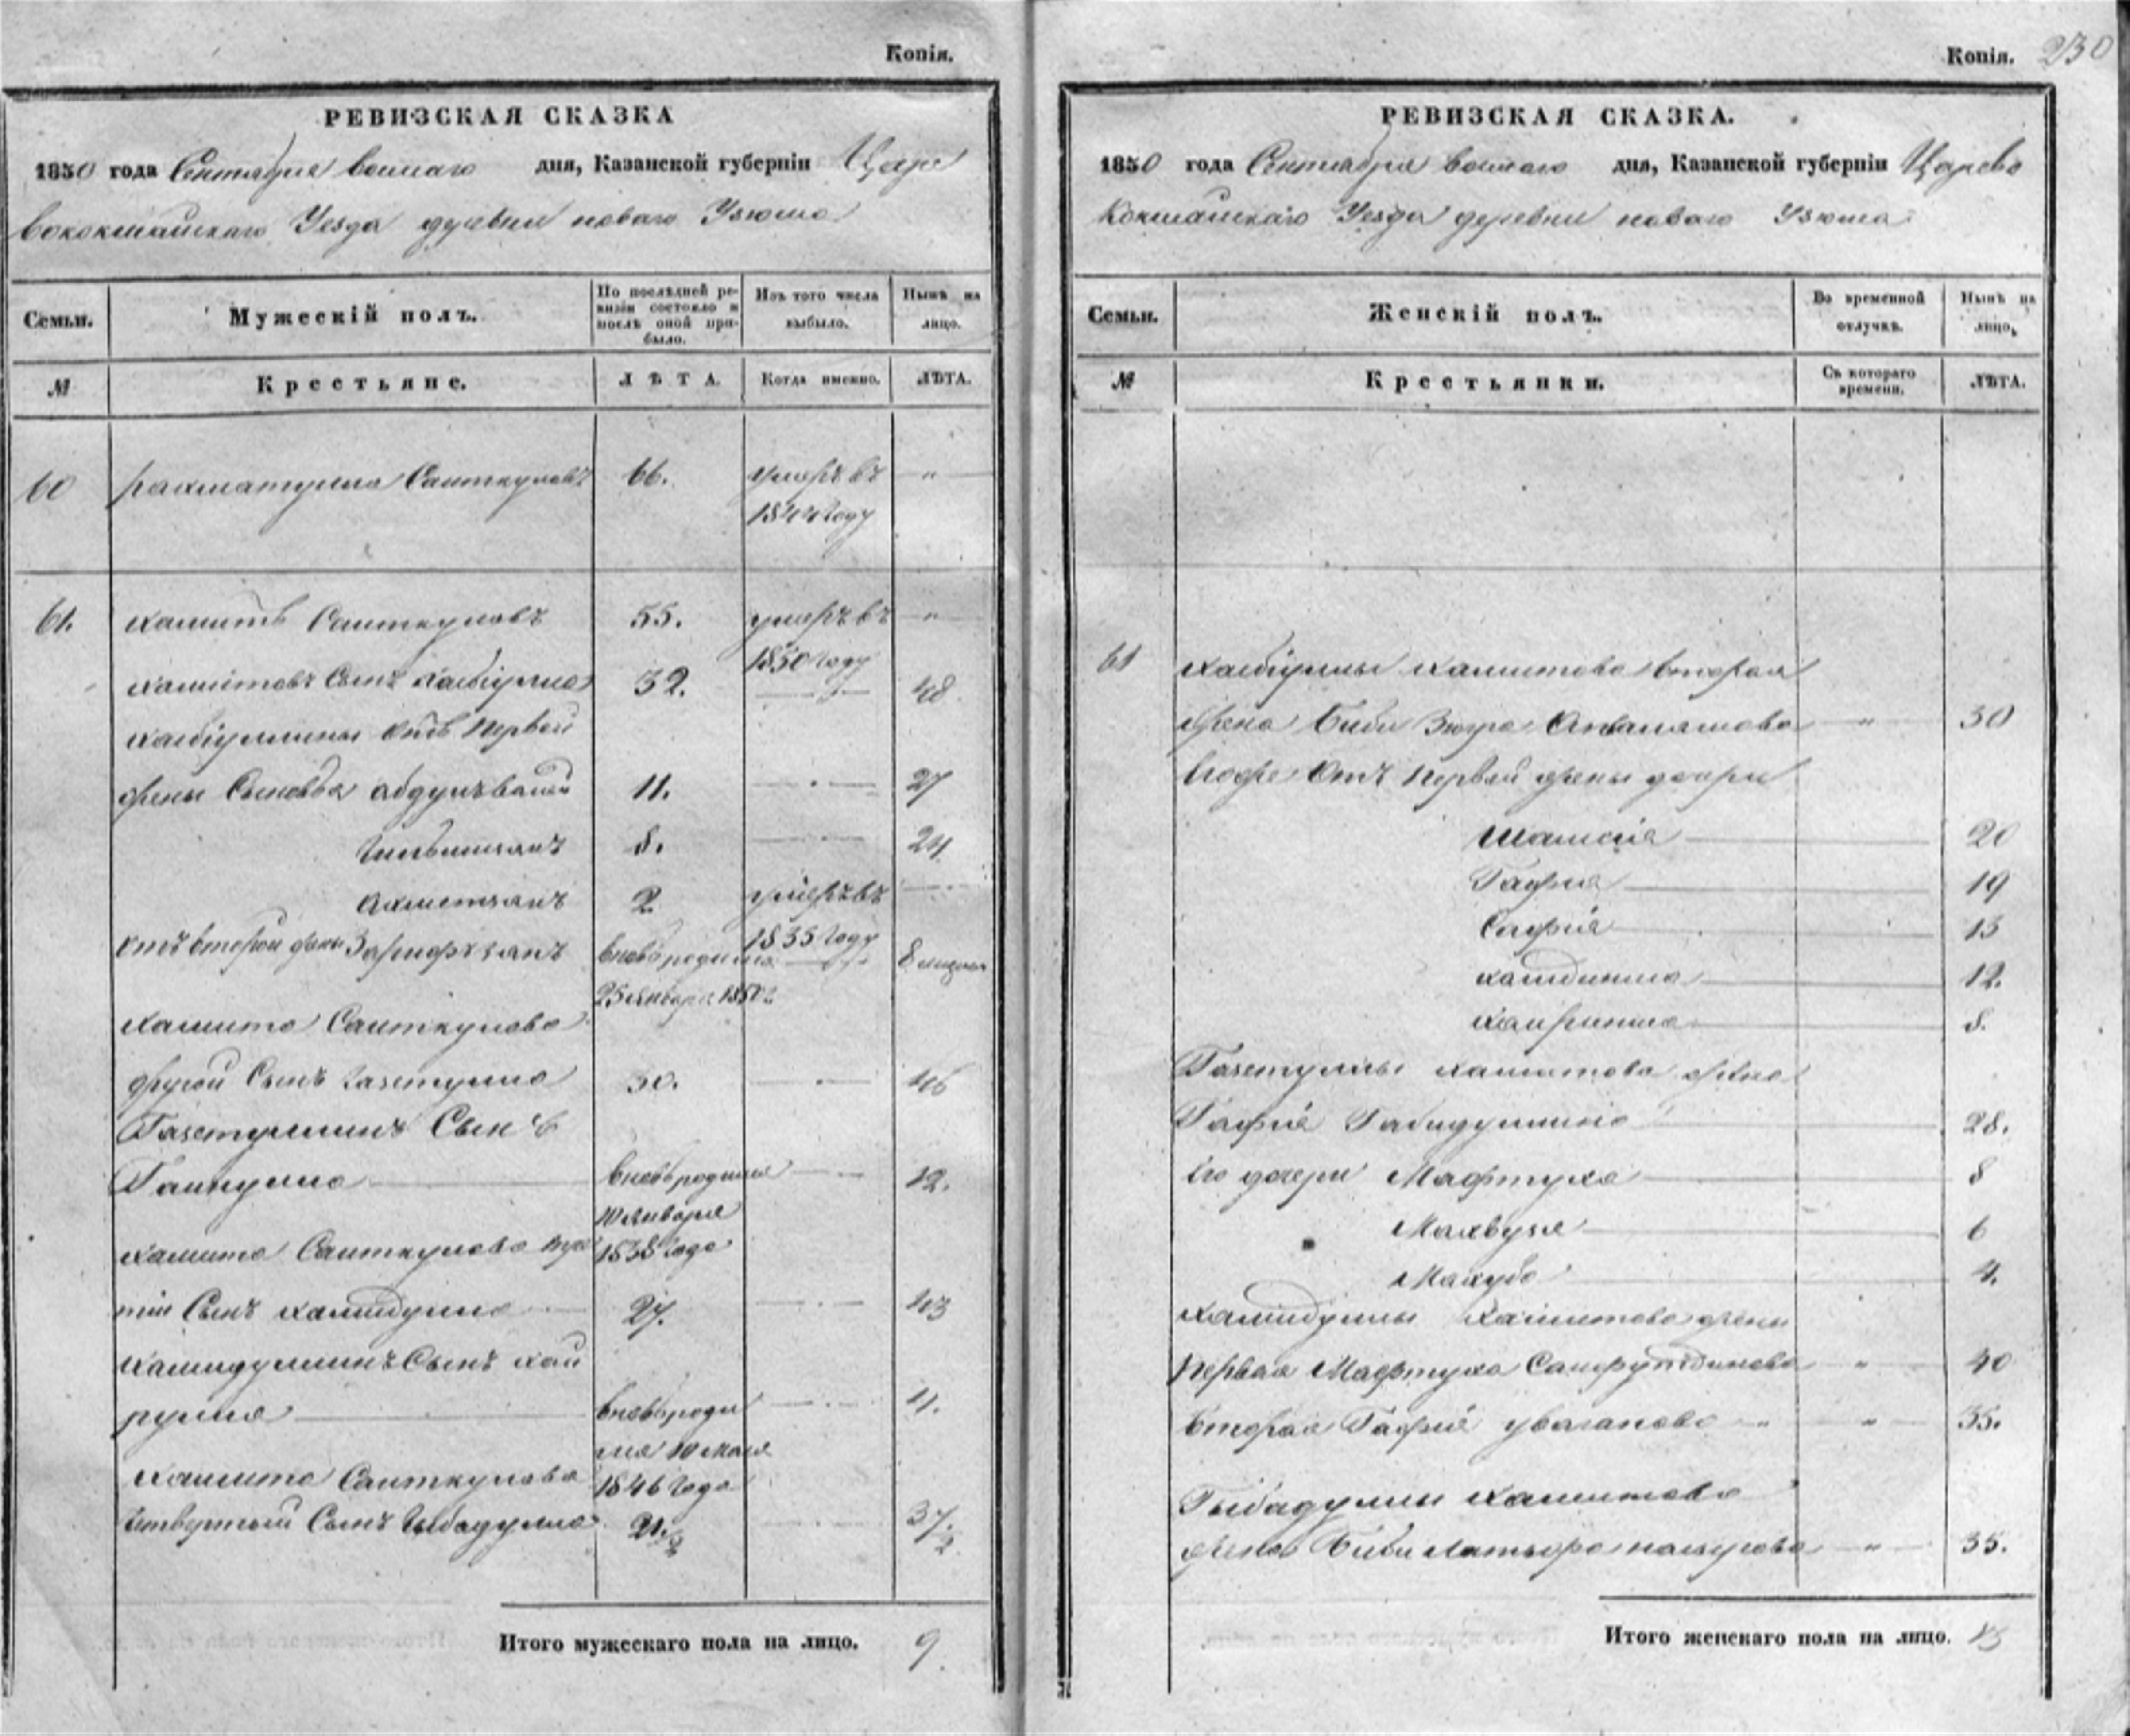 Копія.
РЕВИЗСКАЯ СКАЗКА
1850 года Сентября дня, Казанской губерніи Царе
вококшайскаго Уезда деревни новаго Узюма
Семьи.
Мужескій полъ.
По послѣдней ре-
визіи состояло и
послѣ оной при-
было.
Изъ того числа
выбыло.
Нынѣ на
лицо.
№
Крестьяне.
ЛѢТА.
Когда именно.
ЛѢТА.
60 рахматулла Саиткуловъ 66. умеръ въ "
1844 году
61. хамитъ Саиткуловъ 55. умеръ въ "
1850 году
хамитовъ Сынъ хабіулла 32. 48
хабіуллины отъ первой
жены Сыновья абдулъвали 11. 27
8. 24
ахметзянъ 2 умеръ въ
1835 году
отъ второй жены Зарифъзянъ вновьродился 8 месяцовъ
25 января 1850 г
хамита Саиткулова
другой Сынъ Газетулла 30. 46
Газетуллинъ Сынъ
вновьродился 12.
10 января
1838 года
хамита Саиткулова тре
тій Сынъ хамидулла 27. 43
хамидуллинъ Сынъ хай
рулла вновьроди 4.
лся 10 мая
1846 года
хамита Саиткулова
четвертый Сынъ Гыбадулла 21 1/2 37 1/2
Итого мужескаго пола на лицо. 9.
Копія. 230
РЕВИЗСКАЯ СКАЗКА.
1850 года Сентября дня, Казанской губерніи Царево
Кокшайскаго Уезда деревни новаго Узюма
Семьи.
Женскій полъ.
Во временной
отлучкѣ.
Нынѣ на
лицо,
№
Крестьянки.
Съ котораго
времени.
ЛѢТА.
61 хабіуллы хамитова вторая
жена Биби Зюгра " 30
Его же отъ первой жены дочери
Шамсія 20
Гафія 19
Сафія 13
12.
8.
Газетуллы хамитова жена
Гафія Габидуллина 28.
Его дочери Мафтуха 8
Махбузя 6
4.
хамидуллы хамитова жены
первая Мафтуха Сайфутдинова " 40
вторая Гафія " 35.
Гыбадуллы хамитова
жена Биби " 35.
Итого женскаго пола на лицо. 13